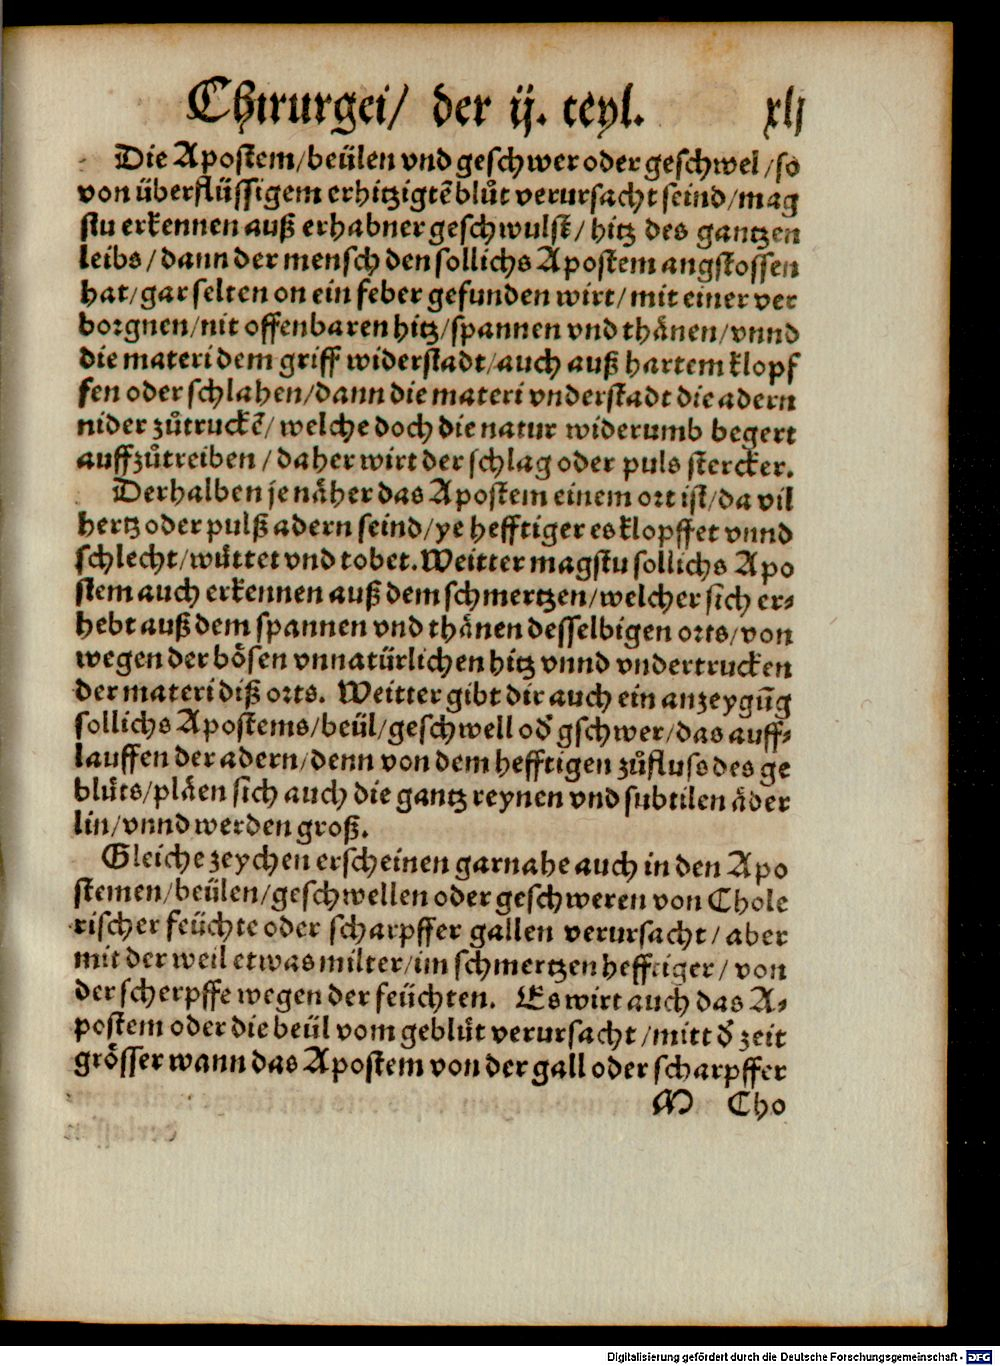 Chirurgei/ der ij. teyl. xlj
Die Apostem/beülen vnd geschwer oder geschwel/so
von überflüssigem erhitzigtẽ blůt verursacht seind/mag
stu erkennen auß erhabner geschwulst/ hitz des gantzen
leibs/dann der mensch den sollichs Apostem angstossen
hat/gar selten on ein feber gefunden wirt/mit einer ver
borgnen/nit offenbaren hitz/spannen vnd thånen/vnnd
die materi dem griff widerstadt/auch auß hartem klopf
fen oder schlahen/dann die materi vnderstadt die adern
nider zůtruckẽ/welche doch die natur widerumb begert
auffzůtreiben/daher wirt der schlag oder puls stercker.
Derhalben je nåher das Apostem einem ort ist/da vil
hertz oder pulß adern seind/ye hefftiger es klopffet vnnd
schlecht/wůttet vnd tobet. Weitter magstu sollichs Apo
stem auch erkennen auß dem schmertzen/welcher sich er⸗
hebt auß dem spannen vnd thånen desselbigen orts/von
wegen der bösen vnnatürlichen hitz vnnd vndertrucken
der materi diß orts. Weitter gibt dir auch ein anzeygũg
sollichs Apostems/beül/geschwell oď gschwer/das auff⸗
lauffen der adern/denn von dem hefftigen zůfluss des ge
blůts/plåen sich auch die gantz reynen vnd subtilen åder
lin/vnnd werden groß.
Gleiche zeychen erscheinen garnahe auch in den Apo
stemen/beülen/geschwellen oder geschweren von Chole
rischer feüchte oder scharpffer gallen verursacht/aber
mit der weil etwas milter/im schmertzen hefftiger/von
der scherpffe wegen der feüchten. Es wirt auch das A⸗
postem oder die beül vom geblůt verursacht/mitt ď zeit
grösser wann das Apostem von der gall oder scharpffer
M Cho
Digitalisierung gefördert durch die Deutsche Forschungsgemeinschaft - DFG